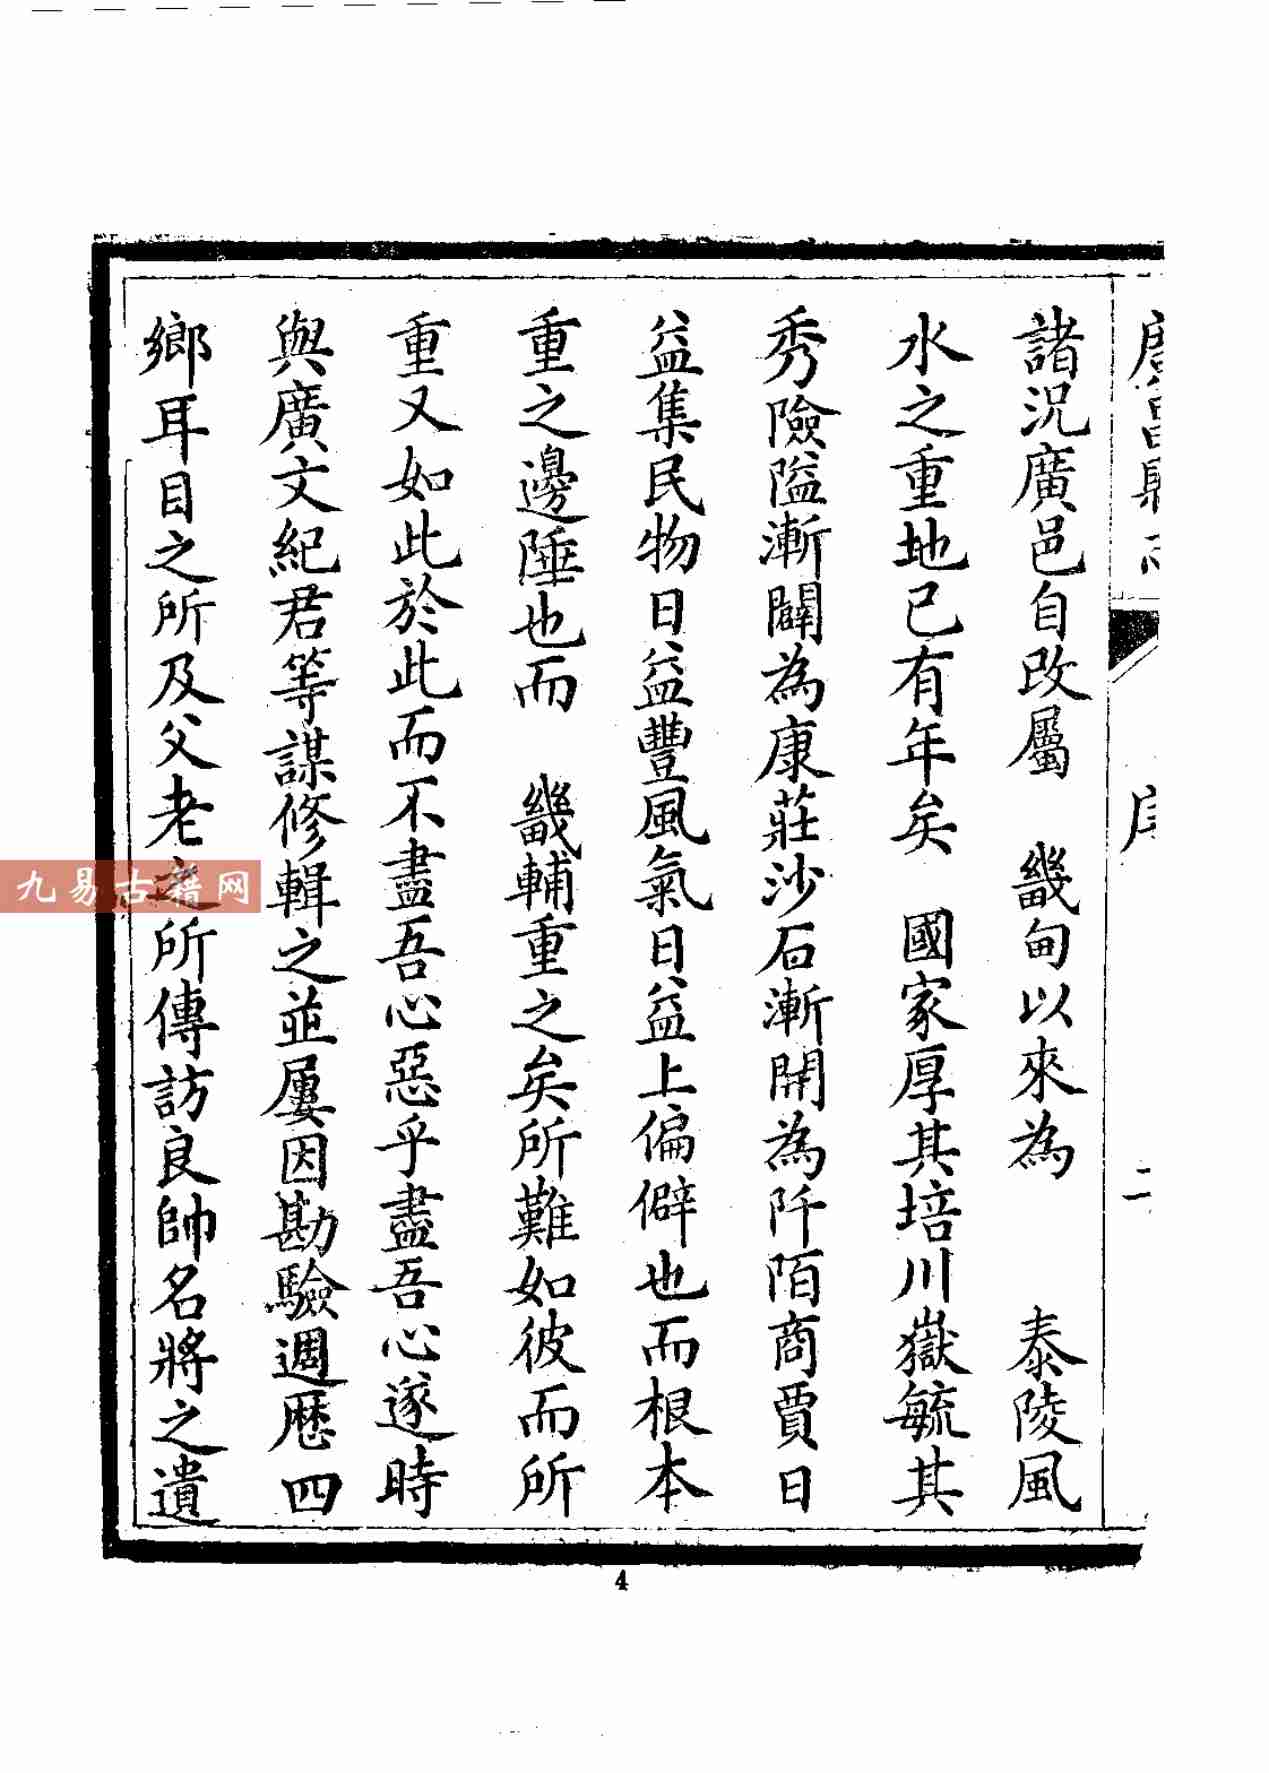 諸況廣邑自改屬　畿甸以來為　　泰陵風
水之重地已有年矣　國家厚其培川嶽毓其
秀險隘漸闢為康莊沙石漸開為阡陌商賈日
益集民物日益豐風氣日益上偏僻也而根本
重之邊陲也而　畿輔重之矣所難如彼而所
重又如此於此而不盡吾心惡乎盡吾心遂時
與廣文紀君等謀修輯之並屢因勘驗週歷四
鄉耳目之所及父老之所傳訪良帥名將之遺
序
二
九易古籍网
4